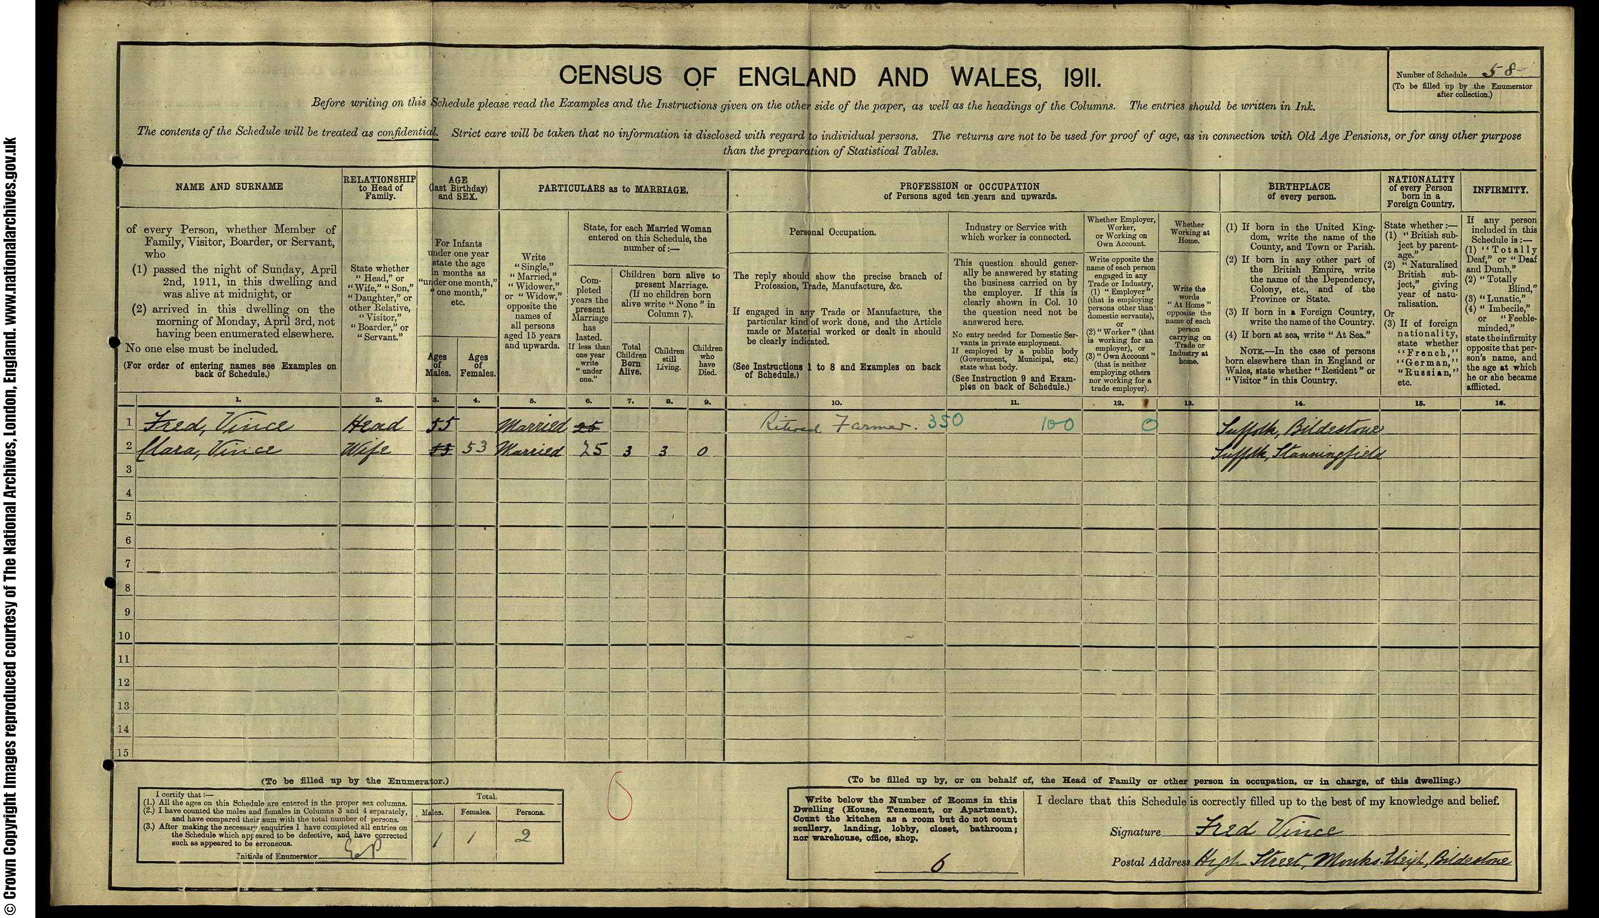 © Crown Copyright Images reproduced courtesy of The National Archives, London, England. www.nationalarchives.gov.uk
CENSUS OF ENGLAND AND WALES, 1911.
Number of Schedule 58
(To be filled up by the Enumerator after collection.)
Before writing on this Schedule please read the Examples and the Instructions given on the other side of the paper, as well as the headings of the Columns. The entries should be written in Ink.
The contents of the Schedule will be treated as confidential. Strict care will be taken that no information is disclosed with regard to individual persons. The returns are not to be used for proof of age, as in connection with Old Age Pensions, or for any other purpose
than the preparation of Statistical Tables.
NAME AND SURNAME
of every Person, whether Member of
Family, Visitor, Boarder, or Servant,
who
(1) passed the night of Sunday, April
2nd, 1911, in this dwelling and
was alive at midnight, or
(2) arrived in this dwelling on the
morning of Monday, April 3rd, not
having been enumerated elsewhere.
No one else must be included.
(For order of entering names see Examples on
back of Schedule.)
RELATIONSHIP
to Head of
Family.
State whether
"Head," or
"Wife," "Son,"
"Daughter," or
other Relative,
"Visitor,"
"Boarder," or
"Servant."
AGE
(last Birthday)
and SEX.
For Infants
under one year
state the age
in months as
"under one month,"
"one month,"
etc.
Ages
of
Males.
Ages
of
Females.
PARTICULARS as to MARRIAGE.
Write
"Single,"
"Married,"
"Widower,"
or "Widow,"
opposite the
names of
all persons
aged 15 years
and upwards.
State, for each Married Woman
entered on this Schedule, the
number of:—
Com-
pleted
years the
present
Marriage
has
lasted.
If less than
one year
write
"under
one."
Children born alive to
present Marriage.
(If no children born
alive write "None" in
Column 7).
Total
Children
Born
Alive.
Children
still
Living.
Children
who
have
Died.
PROFESSION or OCCUPATION
of Persons aged ten years and upwards.
Personal Occupation.
The reply should show the precise branch of
Profession, Trade, Manufacture, &c.
If engaged in any Trade or Manufacture, the
particular kind of work done, and the Article
made or Material worked or dealt in should
be clearly indicated.
(See Instructions 1 to 8 and Examples on back
of Schedule.)
Industry or Service with
which worker is connected.
This question should gener-
ally be answered by stating
the business carried on by
the employer. If this is
clearly shown in Col. 10
the question need not be
answered here.
No entry needed for Domestic Ser-
vants in private employment.
If employed by a public body
(Government, Municipal, etc.)
state what body.
(See Instruction 9 and Exam-
ples on back of Schedule.)
Whether Employer,
Worker,
or Working on
Own Account.
Write opposite the
name of each person
engaged in any
Trade or Industry,
(1) "Employer"
(that is employing
persons other than
domestic servants),
or
(2) "Worker" (that
is working for an
employer), or
(3) "Own Account"
(that is neither
employing others
nor working for a
trade employer).
Whether
Working at
Home.
Write the
words
"At Home"
opposite the
name of each
person
carrying on
Trade or
Industry at
home.
BIRTHPLACE
of every person.
(1) If born in the United King-
dom, write the name of the
County, and Town or Parish.
(2) If born in any other part of
the British Empire, write
the name of the Dependency,
Colony, etc., and of the
Province or State.
(3) If born in a Foreign Country,
write the name of the Country.
(4) If born at sea, write "At Sea."
NOTE.—In the case of persons
born elsewhere than in England or
Wales, state whether "Resident" or
"Visitor" in this Country.
NATIONALITY
of every Person
born in a
Foreign Country.
State whether:—
(1) "British sub-
ject by parent-
age."
(2) "Naturalised
British sub-
ject," giving
year of natu-
ralisation.
Or
(3) If of foreign
nationality,
state whether
"French,"
"German,"
"Russian,"
etc.
INFIRMITY.
If any person
included in this
Schedule is:—
(1) "Totally
Deaf," or "Deaf
and Dumb,"
(2) "Totally
Blind,"
(3) "Lunatic,"
(4) "Imbecile,"
or "Feeble-
minded,"
state the infirmity
opposite that per-
son's name, and
the age at which
he or she became
afflicted.
1. 2. 3. 4. 5. 6. 7. 8. 9. 10. 11. 12. 13. 14. 15. 16.
1 Fred, Vince Head 55 Married 25 Retired Farmer. 350 100 0 Suffolk, Bildestone
2 Clara, Vince Wife 53 53 Married 25 3 3 0 Suffolk, Stanningfield
3
4
5
6
7
8
9
10
11
12
13
14
15
(To be filled up by the Enumerator.)
I certify that:—
(1.) All the ages on this Schedule are entered in the proper sex columns.
(2.) I have counted the males and females in Columns 3 and 4 separately,
and have compared their sum with the total number of persons.
(3.) After making the necessary enquiries I have completed all entries on
the Schedule which appeared to be defective, and have corrected
such as appeared to be erroneous.
Initials of Enumerator
Total.
Males. Females. Persons.
1 1 2
(To be filled up by, or on behalf of, the Head of Family or other person in occupation, or in charge, of this dwelling.)
Write below the Number of Rooms in this
Dwelling (House, Tenement, or Apartment).
Count the kitchen as a room but do not count
scullery, landing, lobby, closet, bathroom;
nor warehouse, office, shop.
6
I declare that this Schedule is correctly filled up to the best of my knowledge and belief.
Signature Fred Vince
Postal Address High Street, Monks Eleigh, Bildestone